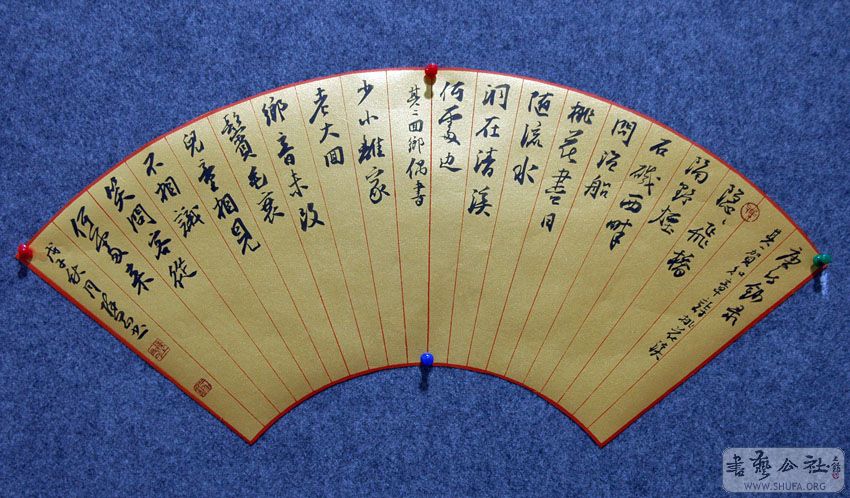 其賀知章詩桃花溪
隱〻飛橋
隔野煙
石磯西畔
問漁船
桃花盡日
隨流水
洞在清溪
何處边
其二回鄉偶書
少小離家
老大回
鄉音未改
鬢毛衰
兒童相見
不相識
笑問客從
何處来
戊子秋月
書藝公社
WWW.SHUFA.ORG